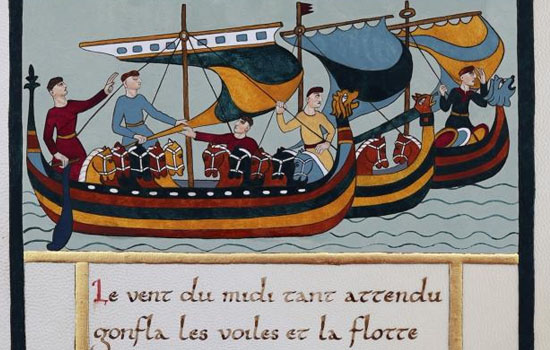 Le vent du midi tant attendu
gonfla les voiles et la flotte